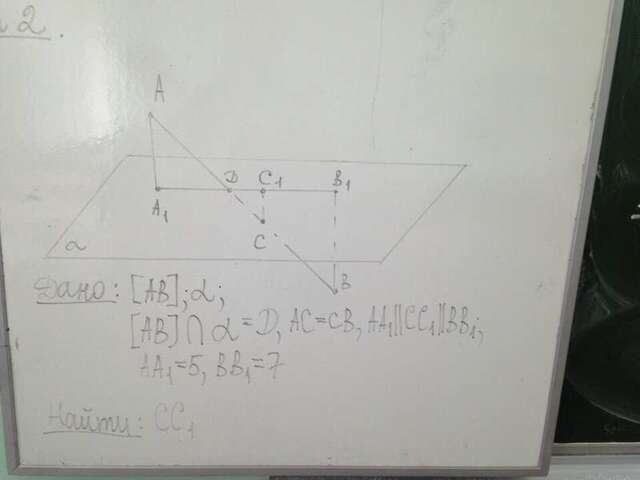 2.
A
D C₁ B₁
A₁
C
α
B
Дано: [AB]; α;
[AB] ∩ α = D, AC = CB, AA₁ || CC₁ || BB₁;
AA₁ = 5, BB₁ = 7
Найти: CC₁